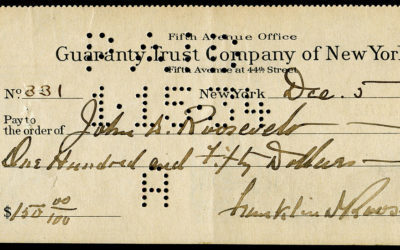 Fifth Avenue Office
Guaranty Trust Company of New York
Fifth Avenue at 44th Street
No. 331 New York Dec. 5
1.15.34
Pay to
the order of John A. Roosevelt
One Hundred and Fifty Dollars
H
$150 00/100 Franklin D. Roos